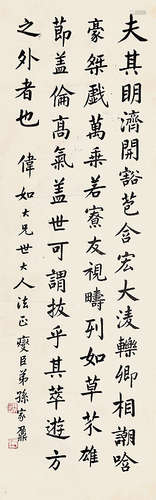 夫其明濟開豁苞含宏大淩轢卿相謿哈
豪桀戲萬乘若寮友視疇列如草芥雄
節蓋倫高氣蓋世可謂拔乎其萃遊方
之外者也 偉如大兄世大人法正 燮臣弟孫家鼐